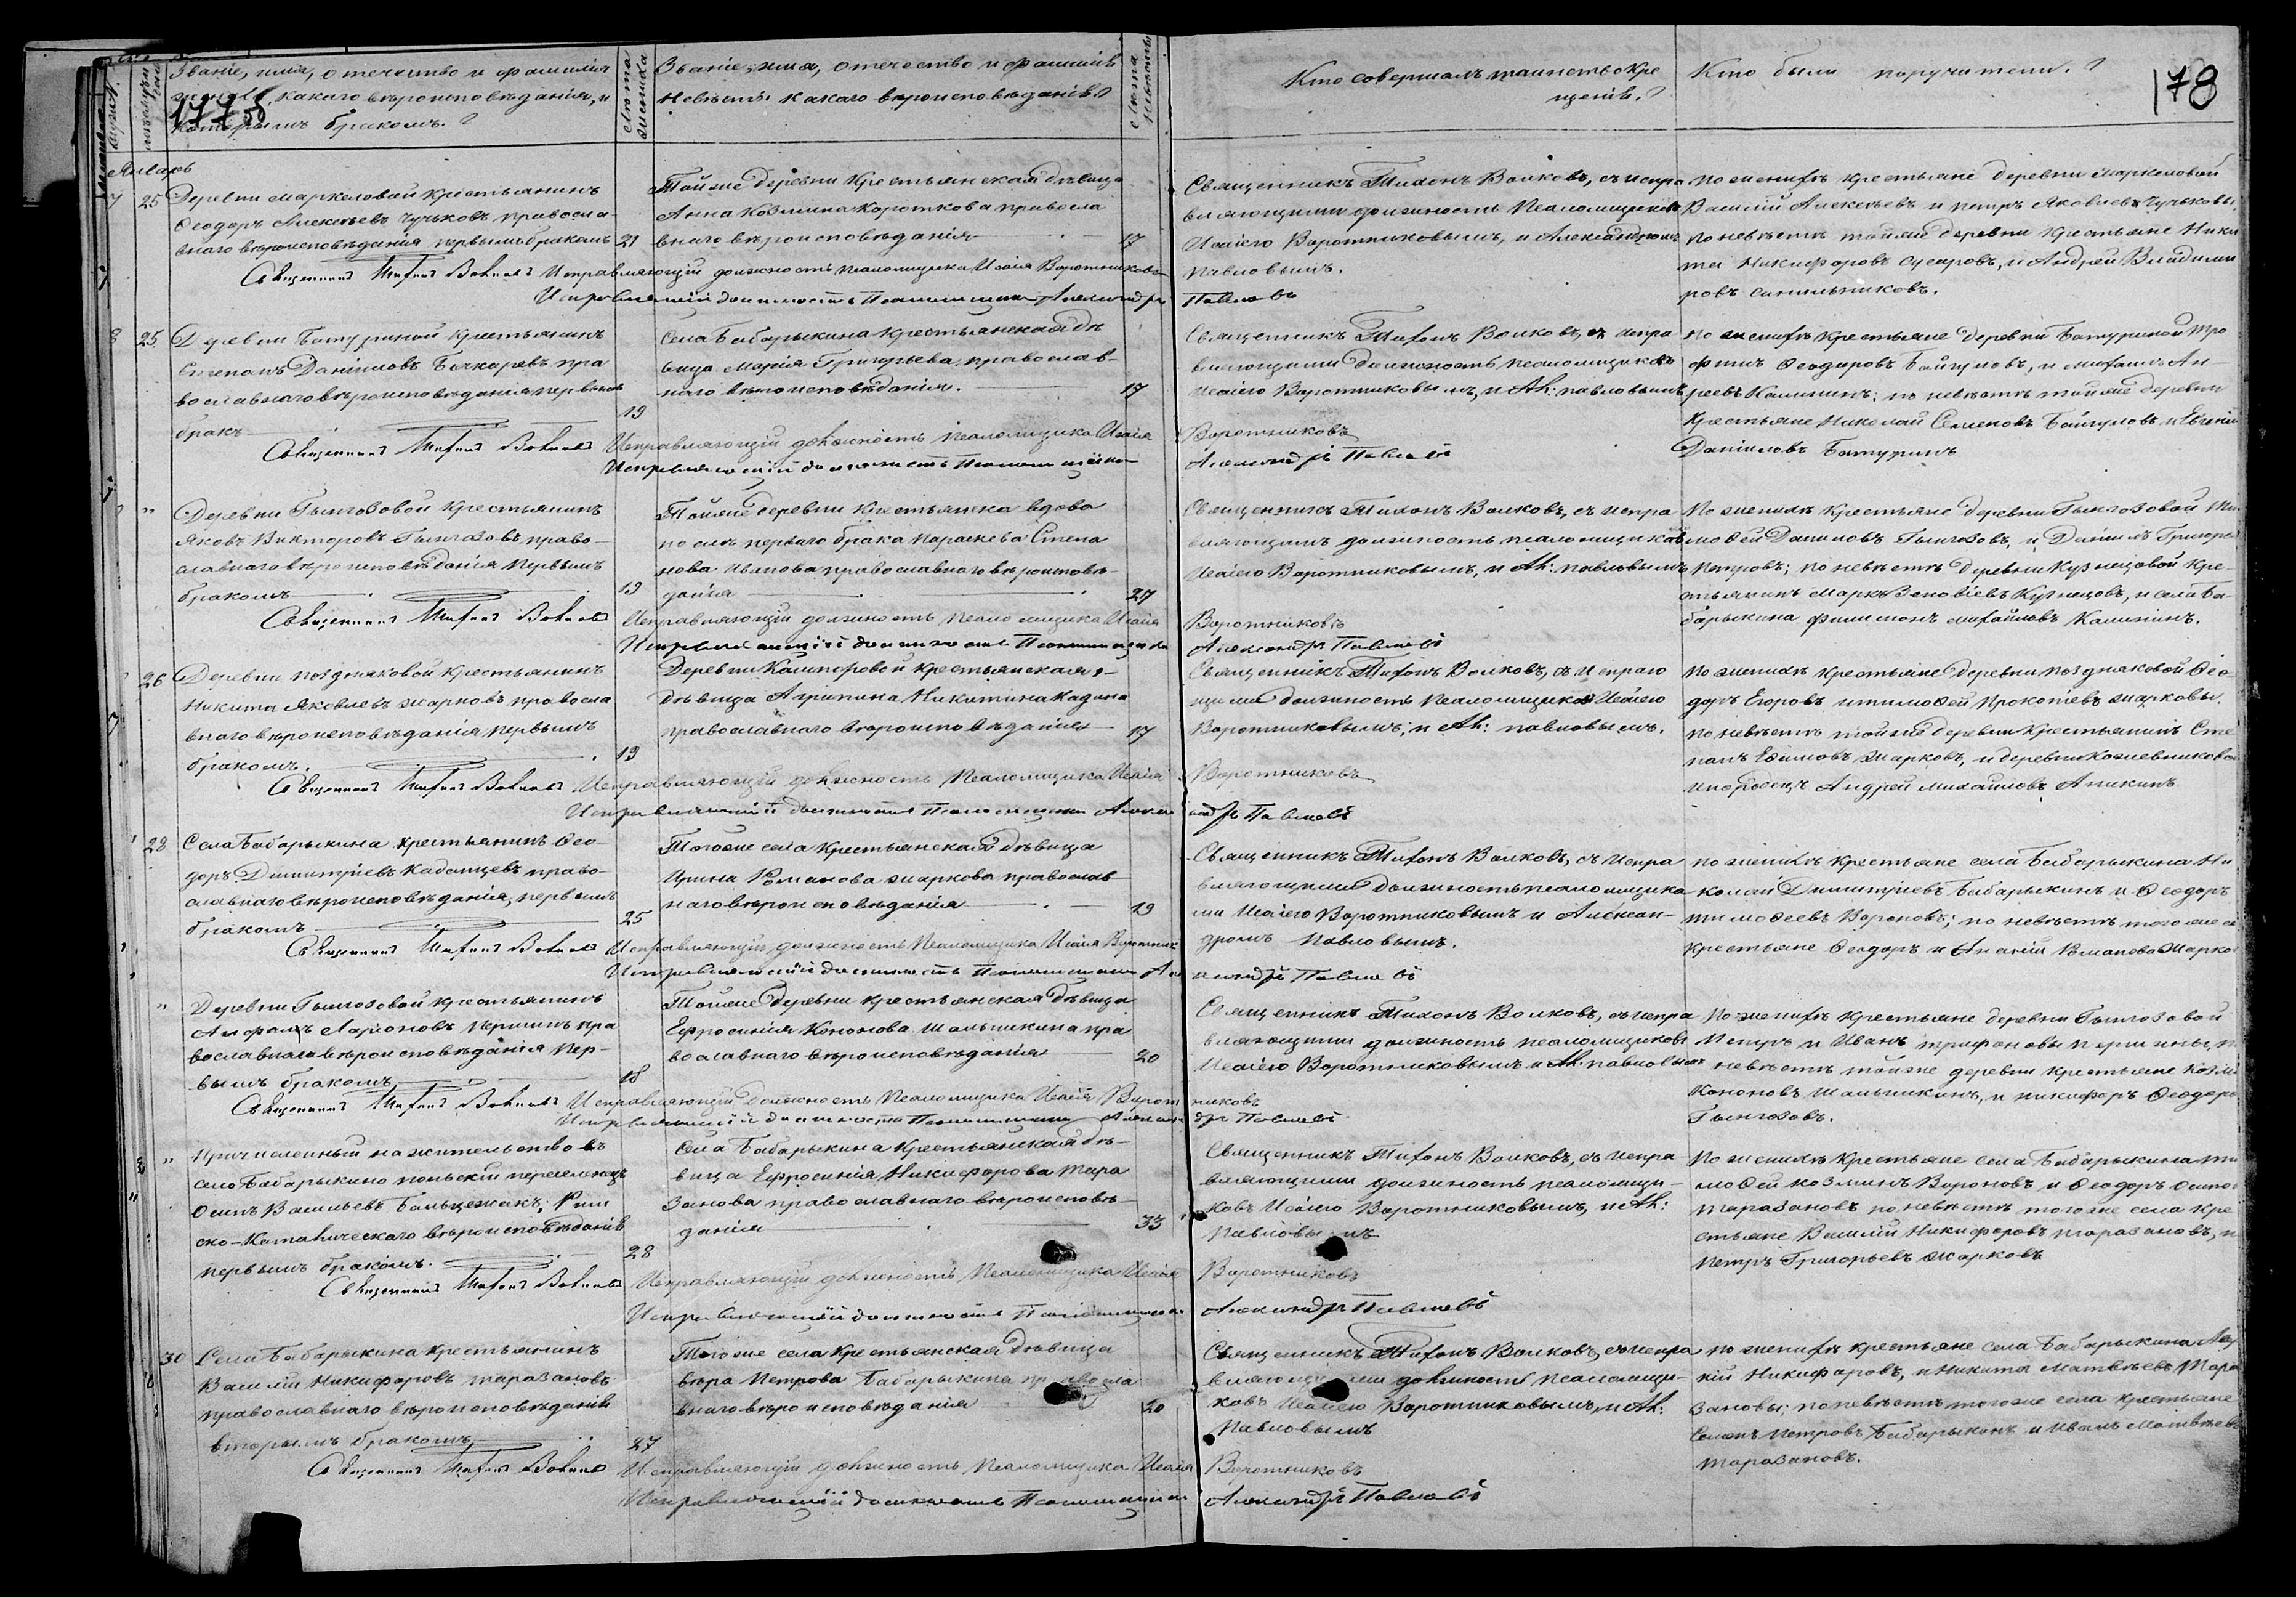 Званіе, имя, отечество и фамилія
жениха, какаго вѣроисповѣданія, и
которымъ бракомъ.?
Лѣта жениха
Званіе, имя, отечество и фамилія
невѣсты какаго вѣроисповѣданія?
Лѣта невѣсты
Кто совершалъ таинство кре
щенія.?
Кто были поручители.?
178
Январь
7 25 Деревни Маркеловой крестьянинъ
Ѳеодоръ Алексѣевъ Чучковъ, правосла-
внаго вѣроисповѣданія первымъ бракомъ 21
Тойже деревни крестьянская дѣвица
Анна Козмина Короткова правосла
внаго вѣроисповѣданія 17
Священникъ Тихонъ Волковъ, съ испра
вляющими должность псаломщиковъ
Исаіею Воротниковымъ, и Александромъ
Павловымъ.
По женихѣ крестьяне деревни Маркеловой
Василій Алексѣевъ и Петръ Яковлевъ Чучковы,
по невѣстѣ тойже деревни крестьяне Ники
та Никифоровъ Сусаровъ, и Андрей Владими
ровъ Синильниковъ.
Священникъ Тихонъ Волковъ Исправляющій должность псаломщика Исаія Воротниковъ
Исправляющій должность Псаломщика Александръ Павловъ
8 25 Деревни Батуриной крестьянинъ
Степанъ Даниловъ Бочкаревъ пра
вославнаго вѣроисповѣданія первымъ
бракъ 19
Села Бабарыкина крестьянская дѣ
вица Марія Григорьева, православ-
наго вѣроисповѣданія. 17
Священникъ Тихонъ Волковъ, съ испра
вляющими должность псаломщиковъ
Исаіею Воротниковымъ, и Ал: Павловымъ
По женихѣ крестьяне деревни Батуриной Тро
фимъ Ѳеодоровъ Байгуловъ, и Михаилъ Ан
реевъ Калининъ; по невѣстѣ тойже деревни
крестьяне Николай Семеновъ Байгуловъ и Евгеній
Даніиловъ Батуринъ
Священникъ Тихонъ Волковъ Исправляющій должность псаломщика Исаія Воротниковъ
Исправляющій должность Псаломщика Александръ Павловъ
" Деревни Гынгозовой крестьянинъ
Яковъ Викторовъ Гынгозовъ право-
славнаго вѣроисповѣданія первымъ
бракомъ 19
Тойже деревни крестьянска вдова
послѣ перваго брака Параскева Степа
нова Иванова православнаго вѣроисповѣ-
данія 27
Священникъ Тихонъ Волковъ, съ испра
вляющимъ должность псаломщиковъ
Исаіею Воротниковымъ, и Ал: Павловымъ
По женихѣ крестьяне деревни Гынгозовой Ти
моѳей Даниловъ Гынгозовъ, и Даніилъ Григорье
Петровъ; по невѣстѣ деревни Кузнецовой кре-
стьянинъ Маркъ Зеновіевъ Кузнецовъ, и села Ба-
барыкина Филимонъ Михайловъ Калининъ.
Священникъ Тихонъ Волковъ Исправляющій должность псаломщика Исаія Воротниковъ
Исправляющій должность Псаломщика Александръ Павловъ
26 Деревни Поздняковой крестьянинъ
Никита Яковлевъ Жарковъ правосла
внаго вѣроисповѣданія первымъ
бракомъ. 19
Деревни Кайпоровой крестьянская
дѣвица Агрипина Никитина Кадина
православнаго вѣроисповѣданія 17
Священникъ Тихонъ Волковъ, съ исправ
щими должность псаломщиковъ Исаіею
Воротниковымъ, и Ал: Павловымъ.
По женихѣ крестьяне деревни Поздняковой Ѳео-
доръ Егоровъ и Тимоѳей Прокопіевъ Жарковы.
по невѣстѣ тойже деревни крестьянинъ Сте
панъ Ефимовъ Жарковъ, и деревни Кожевниковой
инородецъ Андрей Михайловъ Аникинъ
Священникъ Тихонъ Волковъ Исправляющій должность псаломщика Исаія Воротниковъ
Исправляющій должность Псаломщика Александръ Павловъ
28 Села Бабарыкина крестьянинъ Ѳео-
доръ Димитріевъ Кабанцевъ право-
славнаго вѣроисповѣданія, первымъ
бракомъ 25
Тогоже села крестьянская дѣвица
Ирина Романова Жаркова православ
наго вѣроисповѣданія 19
Священникъ Тихонъ Волковъ, съ испра
вляющими должность псаломщика
ми Исаіею Воротниковымъ и Алексан-
дромъ Павловымъ.
По женихѣ крестьяне села Бабарыкина Ни
колай Димитріевъ Бабарыкинъ и Ѳеодоръ
Тимоѳеевъ Вороновъ; по невѣстѣ тогоже се
крестьяне Ѳеодоръ и Ананій Романовы Жарко
Священникъ Тихонъ Волковъ Исправляющій должность псаломщика Исаія Воротник
Исправляющій должность Псаломщика Александръ Павловъ
" Деревни Гынгозовой крестьянинъ
Агафонъ Ларіоновъ Першинъ пра
вославнаго вѣроисповѣданія пер-
вымъ бракомъ 18
Тойже деревни крестьянская дѣвица
Ефросинія Кононова Шальпикина пра
вославнаго вѣроисповѣданія 20
Священникъ Тихонъ Волковъ, съ испра
вляющими должность псаломщиковъ
Исаіею Воротниковымъ и Ал: Павловымъ
По женихѣ крестьяне деревни Гынгозовой
Петръ и Иванъ Трифоновы Першины, п
невѣстѣ тойже деревни крестьяне Козма
Кононовъ Шальпикинъ, и Никифоръ Ѳеодоро
Гынгозовъ.
Священникъ Тихонъ Волковъ Исправляющій должность псаломщика Исаія Воротниковъ
Исправляющій должность Псаломщика Александръ Павловъ
" Причисленный на жительство въ
село Бабарыкино польскій переселенецъ
Осипъ Васильевъ Бальцежакъ; Рим
ско-Католическаго вѣроисповѣданія
первымъ бракомъ. 28
Села Бабарыкина крестьянская дѣ-
вица Ефросинія Никифорова Тара
занова православнаго вѣроисповѣ-
данія 33
Священникъ Тихонъ Волковъ, съ испра
вляющими должность псаломщи-
ковъ Исаіею Воротниковымъ, и Ал:
Павловымъ
По женихѣ крестьяне села Бабарыкина Ти
моѳей Козминъ Вороновъ и Ѳеодоръ Осипов
Таразановъ по невѣстѣ тогоже села кре
стьяне Василій Никифоровъ Таразановъ, и
Петръ Григорьевъ Жарковъ
Священникъ Тихонъ Волковъ Исправляющій должность псаломщика Исаія Воротниковъ
Исправляющій должность Псаломщика Александръ Павловъ
30 Села Бабарыкина крестьянинъ
Василій Никифоровъ Таразановъ
православнаго вѣроисповѣданія
вторымъ бракомъ 27
Тогоже села крестьянская дѣвица
Вѣра Петрова Бабарыкина правосла
внаго вѣроисповѣданія 20
Священникъ Тихонъ Волковъ, съ испра
вляющими должность псаломщи-
ковъ Исаіею Воротниковымъ, и Ал:
Павловымъ
По женихѣ крестьяне села Бабарыкина
кій Никифоровъ, и Никита Матвѣевъ Тара
зановы; по невѣстѣ тогоже села крестьяне
Семенъ Петровъ Бабарыкинъ и Иванъ Матвѣевъ
Таразановъ.
Священникъ Тихонъ Волковъ Исправляющій должность псаломщика Исаія Воротниковъ
Исправляющій должность Псаломщика Александръ Павловъ